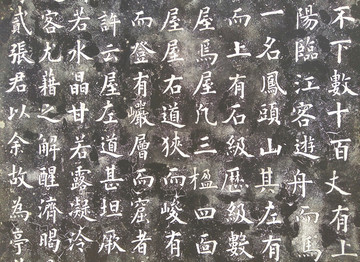 不下數十百丈有上
陽臨江客遊舟而馬
一名鳳頭山其左有
而上有石級歷級數
屋焉屋凢三楹四面
屋屋右道狹而峻有
而登有巖層而窟者
許云屋左道甚坦厥
若水晶甘若露凝冷
客尤藉之解醒濟暍
貳張君以余故為亭